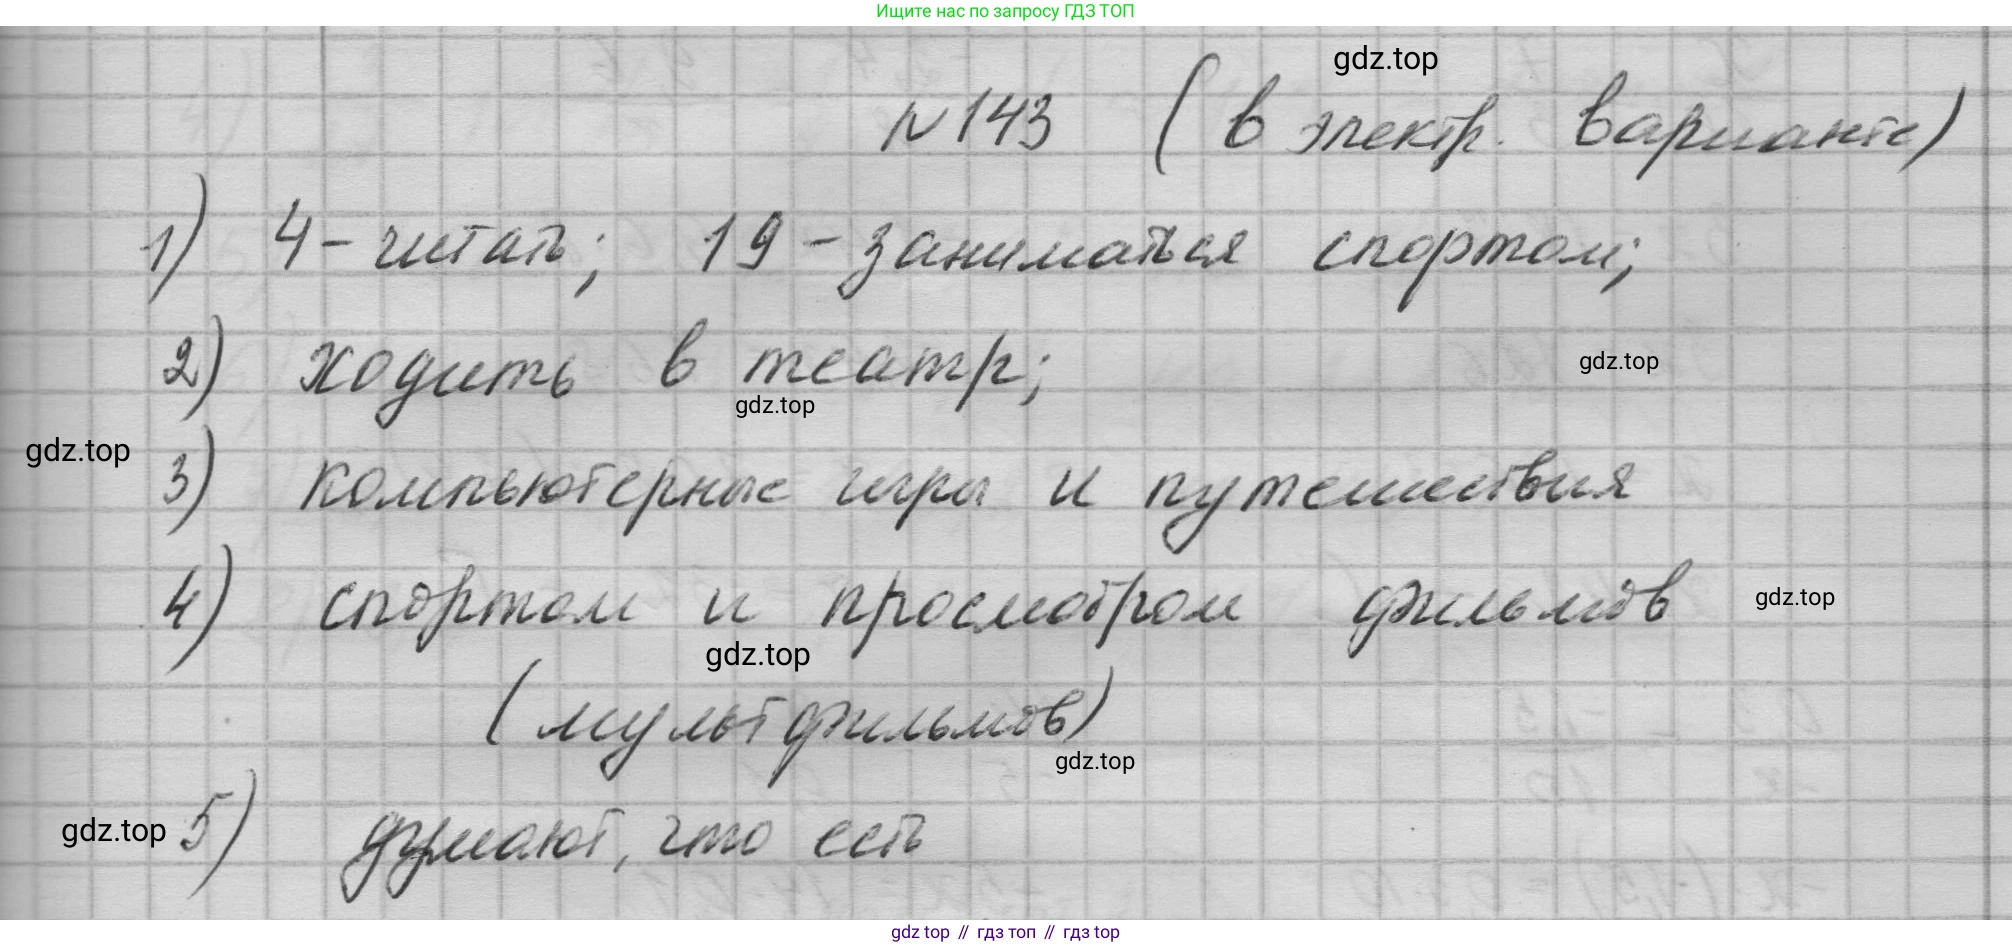 Ищите нас по запросу ГДЗ ТОП
gdz.top
№143 (в электр. варианте)
1) 4 - читать; 19 - заниматься спортом;
2) ходить в театр;
gdz.top
gdz.top
gdz.top
3) компьютерные игры и путешествия
4) спортом и просмотром фильмов
gdz.top
gdz.top
(мультфильмов)
gdz.top
gdz.top
5) думают, что есть
gdz top // гдз топ // гдз top